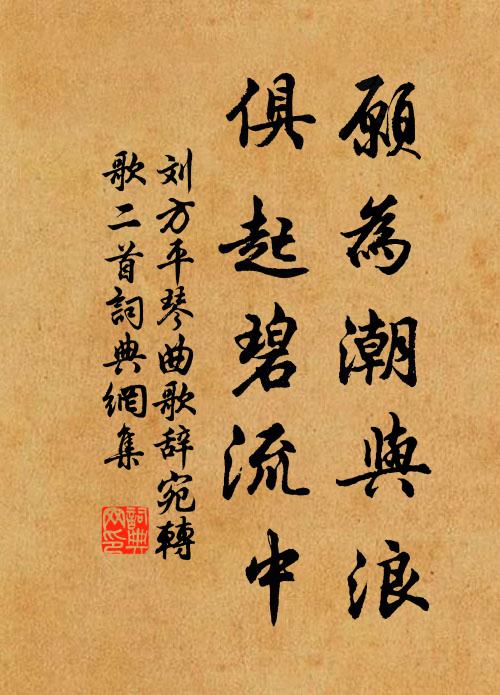 願為潮與浪
俱起碧流中
刘方平琴曲歌辞宛轉
歌二首詞典網集
詞典